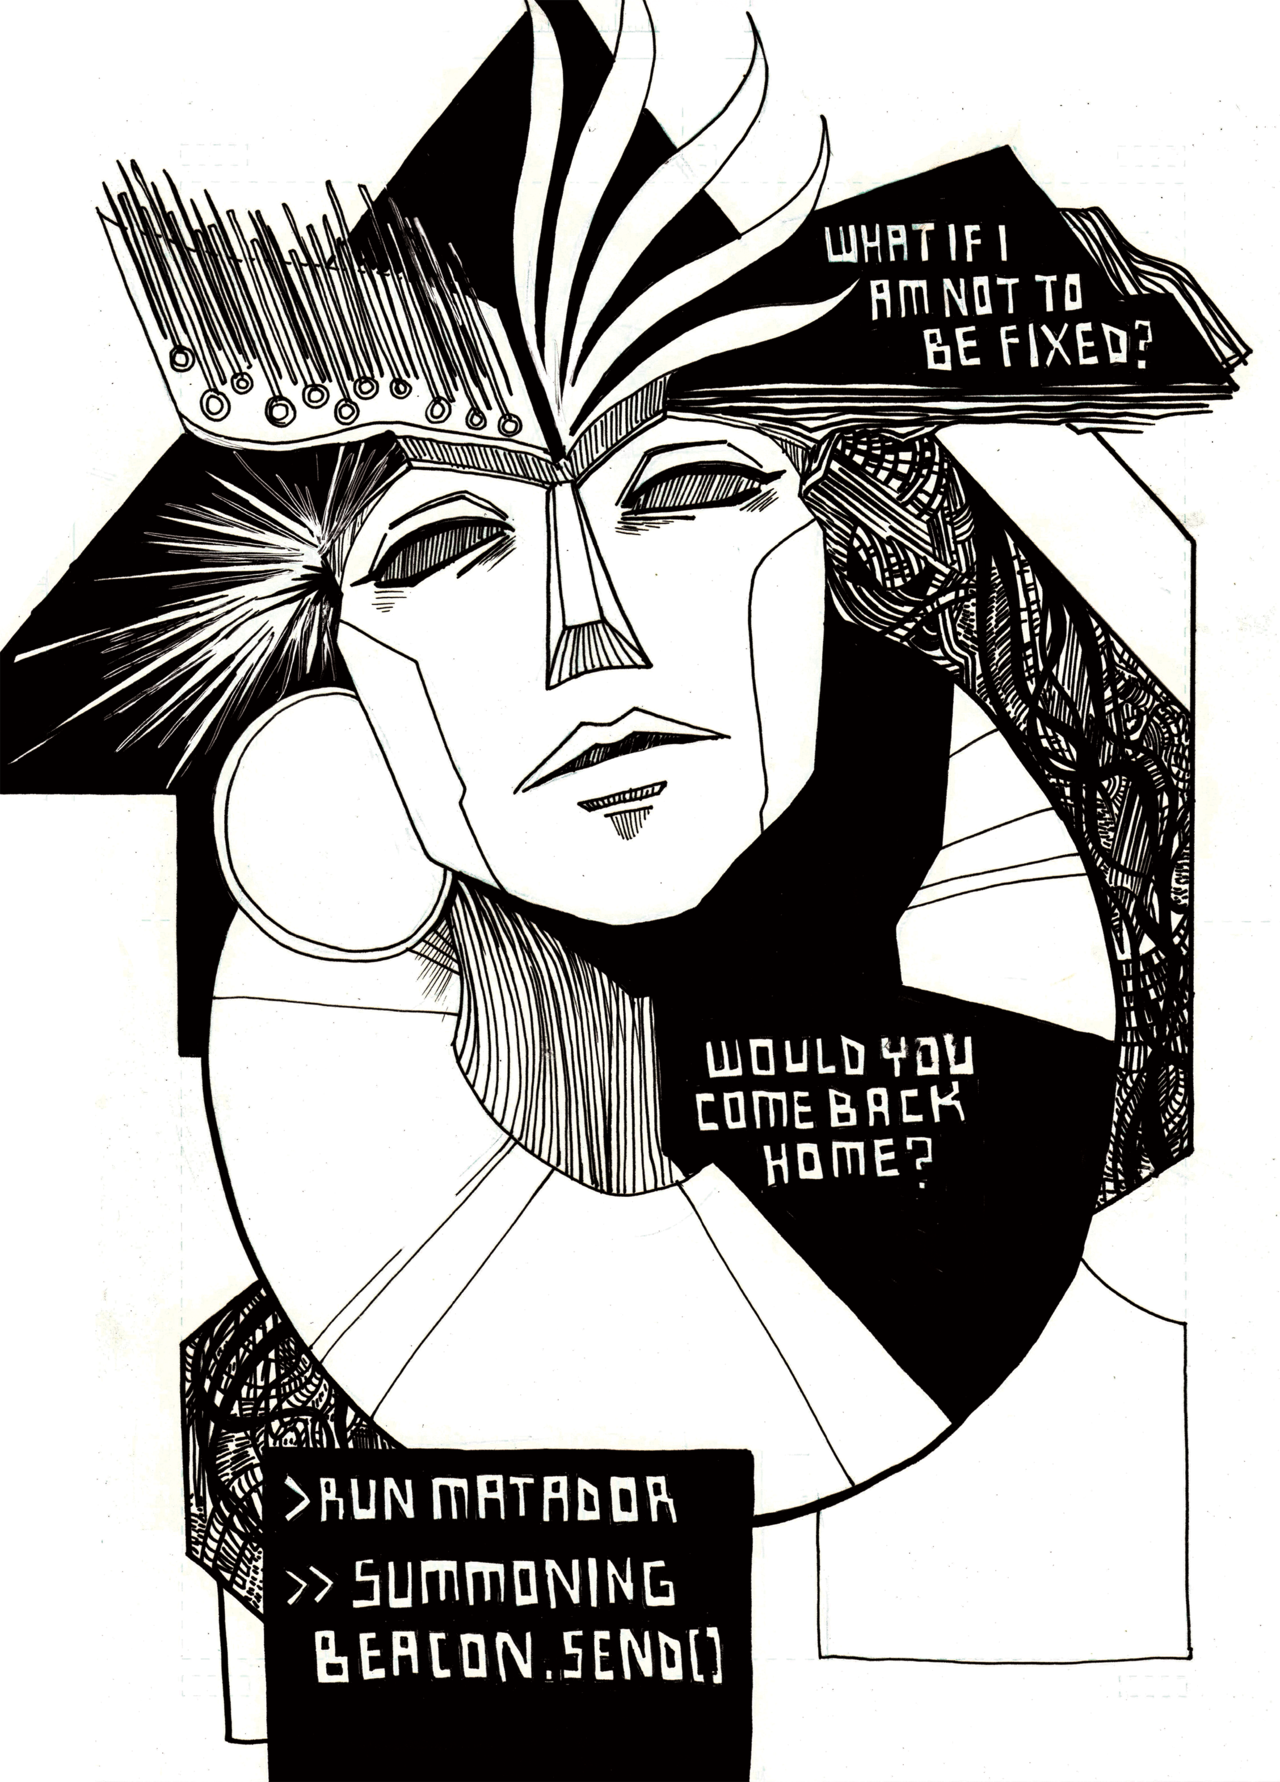 WHAT IF I
AM NOT TO
BE FIXED?
WOULD YOU
COME BACK
HOME?
>RUN MATADOR
>> SUMMONING
BEACON.SEND()